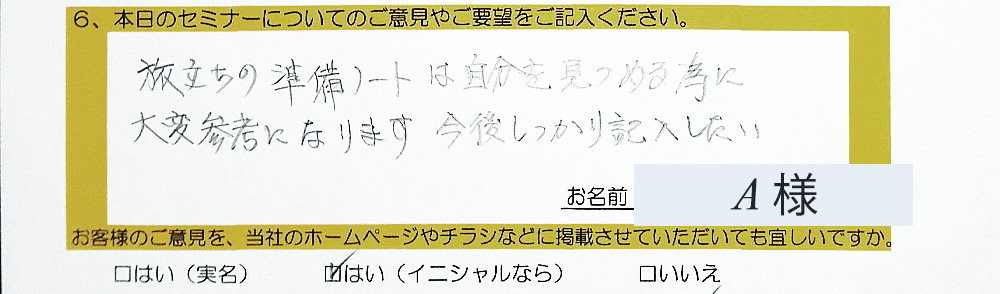 6、本日のセミナーについてのご意見やご要望をご記入ください。
旅立ちの準備ノートは自分を見つめる為に
大変参考になります 今後しっかり記入したい
お名前 A 様
お客様のご意見を、当社のホームページやチラシなどに掲載させていただいても宜しいですか。
□はい（実名） ☑はい（イニシャルなら） □いいえ